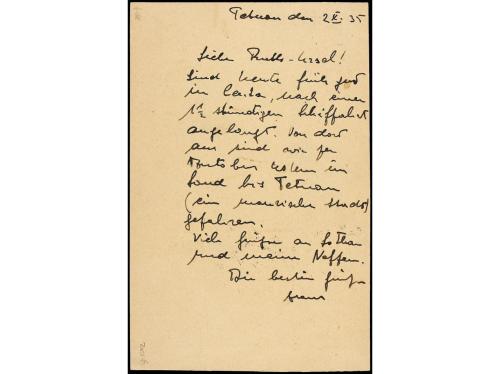 Tetuan den 2 X. 35
Liebe Ruth-Ursel!
Sind heute früh gut
in Ceuta, nach einer
1½ stündigen Schiffahrt
angelangt. Von dort
aus sind wir per
Autobus im
Land bis Tetuan
(ein maurische Stadt)
gefahren.
Viele Grüße an Lothar
und meinen Neffen.
Die besten Grüße